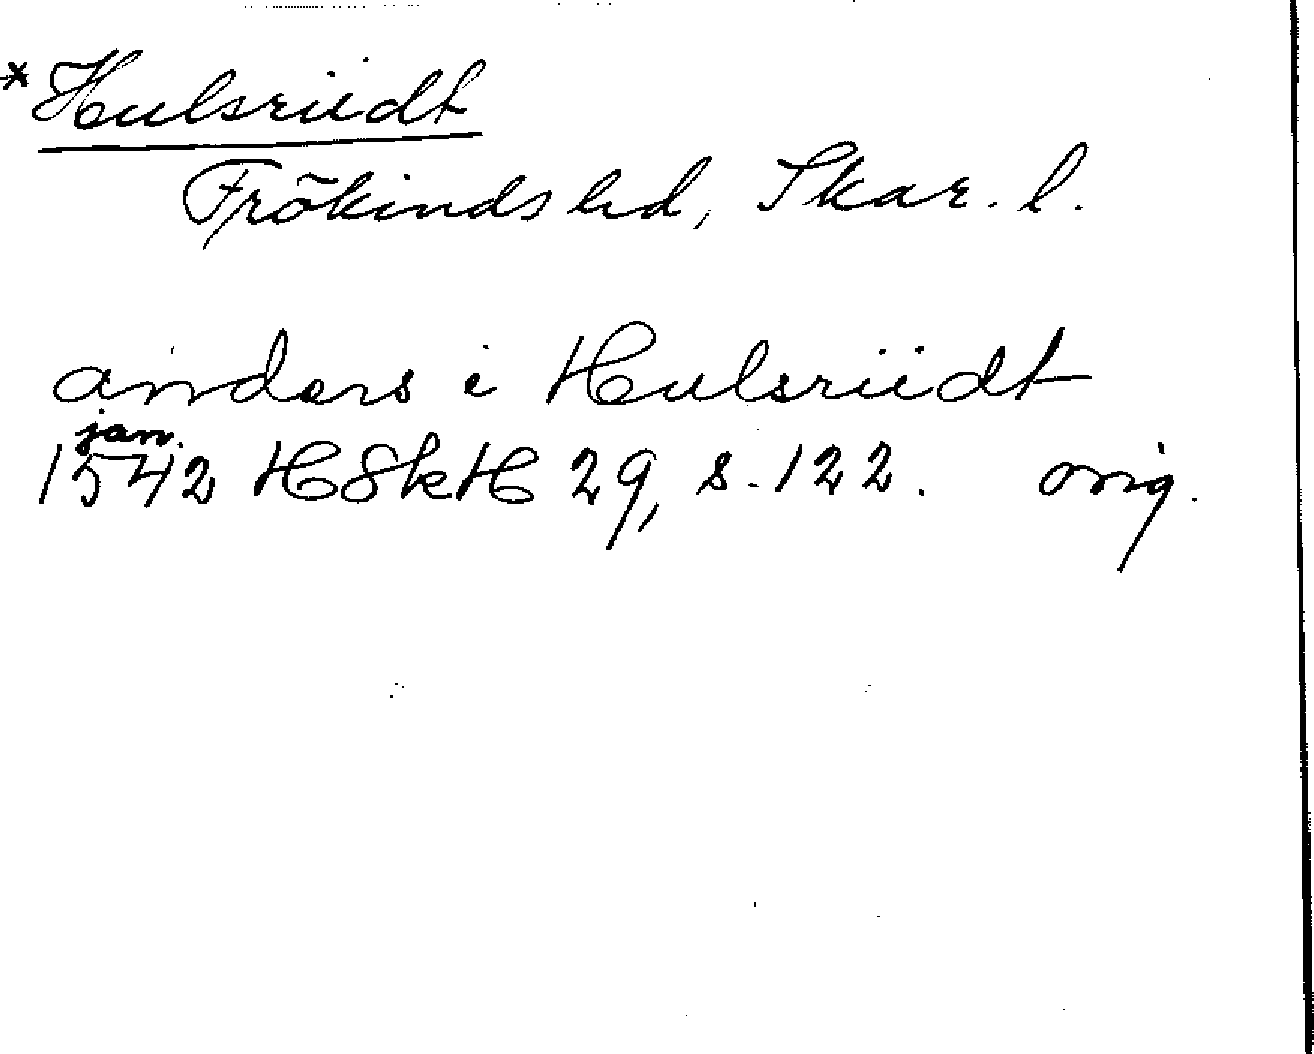 * Hulsriidt
Frökinds hd, Skar. l.
anders i Hulsriidt
jan.
1542 HSkH 29, s. 122. orig.